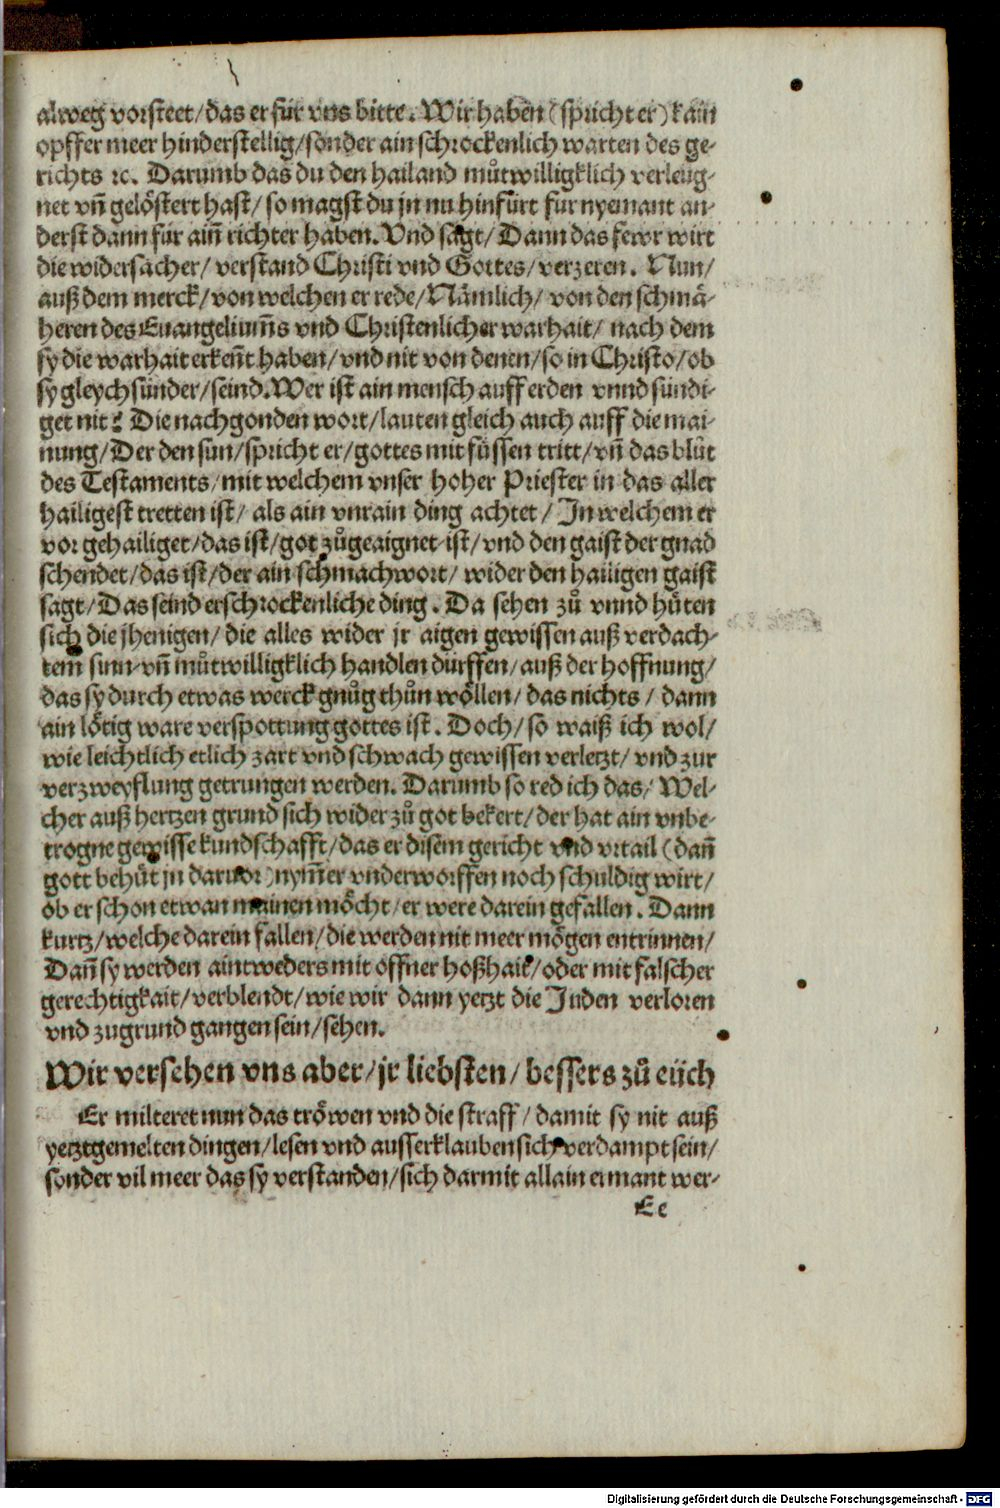 alweg vorsteet/das er für vns bitte. Wir haben (spricht er) kain
opffer meer hinderstellig/sonder ain schrockenlich warten des ge-
richts ꝛc. Darumb das du den hailand můtwilligklich verleug-
net vñ gelöstert hast/ so magst du jn nu hinfürt für nyemant an-
derst dann für aiñ richter haben. Vnd sagt/ Dann das fewr wirt
die widersächer/ verstand Christi vnd Gottes/ verzeren. Nun/
auß dem merck/ von welchen er rede/ Nämlich/ von den schmä-
heren des Euangeliums̄ vnd Christenlicher warhait/ nach dem
sy die warhait erkeñt haben/ vnd nit von denen/ so in Christo/ ob
sy gleych sünder/ seind. Wer ist ain mensch auff erden vnnd sündi-
get nit? Die nachgonden wort/ lauten gleich auch auff die mai-
nung/ Der den sun/ spricht er/ gottes mit füssen tritt/ vñ das blůt
des Testaments/ mit welchem vnser hoher Priester in das aller
hailigest tretten ist/ als ain vnrain ding achtet/ In welchem er
vor gehailiget/ das ist/ got zůgeaignet ist/ vnd den gaist der gnad
schendet/ das ist/ der ain schmachwort/ wider den hailigen gaist
sagt/ Das seind erschrockenliche ding. Da sehen zů vnnd hüten
sich die jhenigen/ die alles wider jr aigen gewissen auß verdach-
tem sinn vñ můtwilligklich handlen dürffen/ auß der hoffnung/
das sy durch etwas werck gnůg thůn wöllen/ das nichts/ dann
ain lötig ware verspottung gottes ist. Doch/ so waiß ich wol/
wie leichtlich etlich zart vnd schwach gewissen verletzt/ vnd zur
verzweyflung getrungen werden. Darumb so red ich das/ Wel-
cher auß hertzen grund sich wider zů got bekert/ der hat ain vnbe-
trogne gewisse kundschafft/ das er disem gericht vnd vrtail (dañ
gott behüt jn daruor) nym̄er vnderworffen noch schuldig wirt/
ob er schon etwan mainen möcht/ er were darein gefallen. Dann
kurtz/ welche darein fallen/ die werden nit meer mögen entrinnen/
Dañ sy werden aintweders mit offner boßhait/ oder mit falscher
gerechtigkait/ verblendt/ wie wir dann yetzt die Juden verloren
vnd zugrund gangen sein/ sehen.
Wir versehen vns aber/ jr liebsten/ bessers zů eüch
Er milteret nun das tröwen vnd die straff/ damit sy nit auß
yetztgemelten dingen/ lesen vnd ausserklauben sich verdampt sein/
sonder vil meer das sy verstanden/ sich darmit allain ermant wer-
Ee
Digitalisierung gefördert durch die Deutsche Forschungsgemeinschaft - DFG